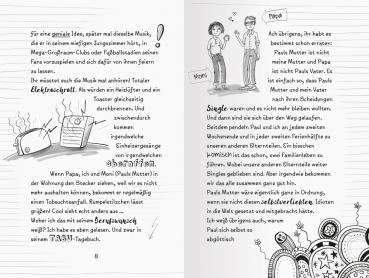 für eine geniale Idee, später mal dieselbe Musik,
die er in seinem miefigen Jungszimmer hört, in
Mega-Großraum-Clubs oder Fußballstadien seinen
Fans vorzuspielen und sich dafür von ihnen feiern
zu lassen.
Ihr müsstet euch die Musik mal anhören! Totaler
Elektroschrott. Als würden ein Heizlüfter und ein
Toaster gleichzeitig
durchbrennen. Und
zwischendurch
kommen
irgendwelche
Einhorngesänge
von irgendwelchen
Wenn Papa, ich und Moni (Pauls Mutter) in
der Wohnung den Stecker ziehen, weil wir es nicht
mehr aushalten können, bekommt er regelmäßig
einen Tobsuchtsanfall. Rumpelstilzchen lässt
grüßen! Cool sieht echt anders aus ...
Woher ich das mit seinem Berufswunsch
weiß? Ich habe es eben gelesen. Und zwar in
seinem Tagebuch.
8
PAPA
MONI
Ach übrigens, ihr habt es
bestimmt schon erraten:
Pauls Mutter ist nicht
meine Mutter und Papa
ist nicht Pauls Vater. Es
ist einfach so, dass Pauls
Mutter und mein Vater
nach ihren Scheidungen
Single waren und es nicht mehr bleiben wollten.
Und dann sind sie sich über den Weg gelaufen.
Seitdem pendeln Paul und ich an jedem zweiten
Wochenende und in jeder zweiten Ferienhälfte zu
unseren anderen Elternteilen. Ein bisschen
komisch ist das schon, zwei Familienleben zu
führen. Wobei unsere anderen Elternteile weiter
Singles geblieben sind. Aber irgendwie bekommen
wir das alle zusammen ganz gut hin.
Pauls Mutter wäre eigentlich ganz in Ordnung,
wenn sie nicht diesen selbstverliebten Idioten
in die Welt gesetzt und mitgebracht hätte.
Ich weiß übrigens auch, warum
Paul sich selbst so
abgöttisch